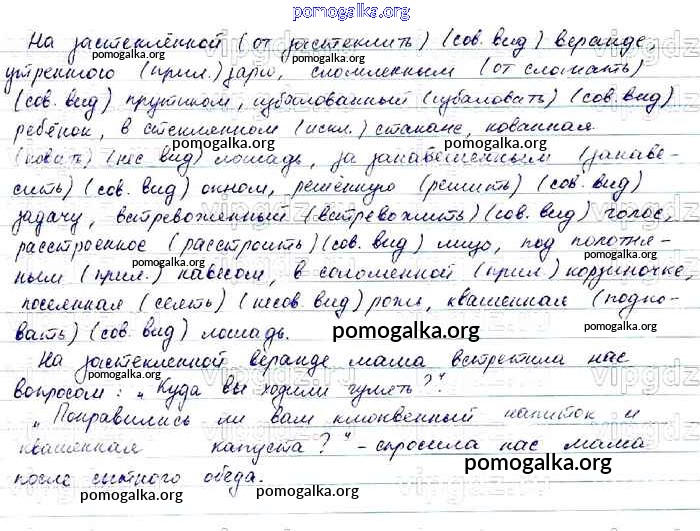 pomogalka.org
На застеклённой (от застеклить) (сов. вид) веранде,
утреннюю (прил.) зарю, сломленным (от сломать)
(сов. вид) прутиком, избалованный (избаловать) (сов. вид)
ребёнок, в стеклянном (искл.) стакане, кованная
(ковать) (нес вид) лошадь, за занавешенным (занаве-
сить) (сов. вид) окном, решённую (решить) (сов. вид)
задачу, встревоженный (встревожить) (сов. вид) голос,
расстроенное (расстроить) (сов. вид) лицо, под полотня-
ным (прил.) навесом, в соломенной (прил) корзиночке,
(сеять) (несов. вид) рожь, квашенная (подко-
вать) (сов. вид) лошадь.
На застекленной веранде мама встретила нас
вопросом: „Куда вы ходили гулять?".
„Понравились ли вам клюквенный напиток и
квашенная капуста?" – спросила нас мама
после сытного обеда.
pomogalka.org